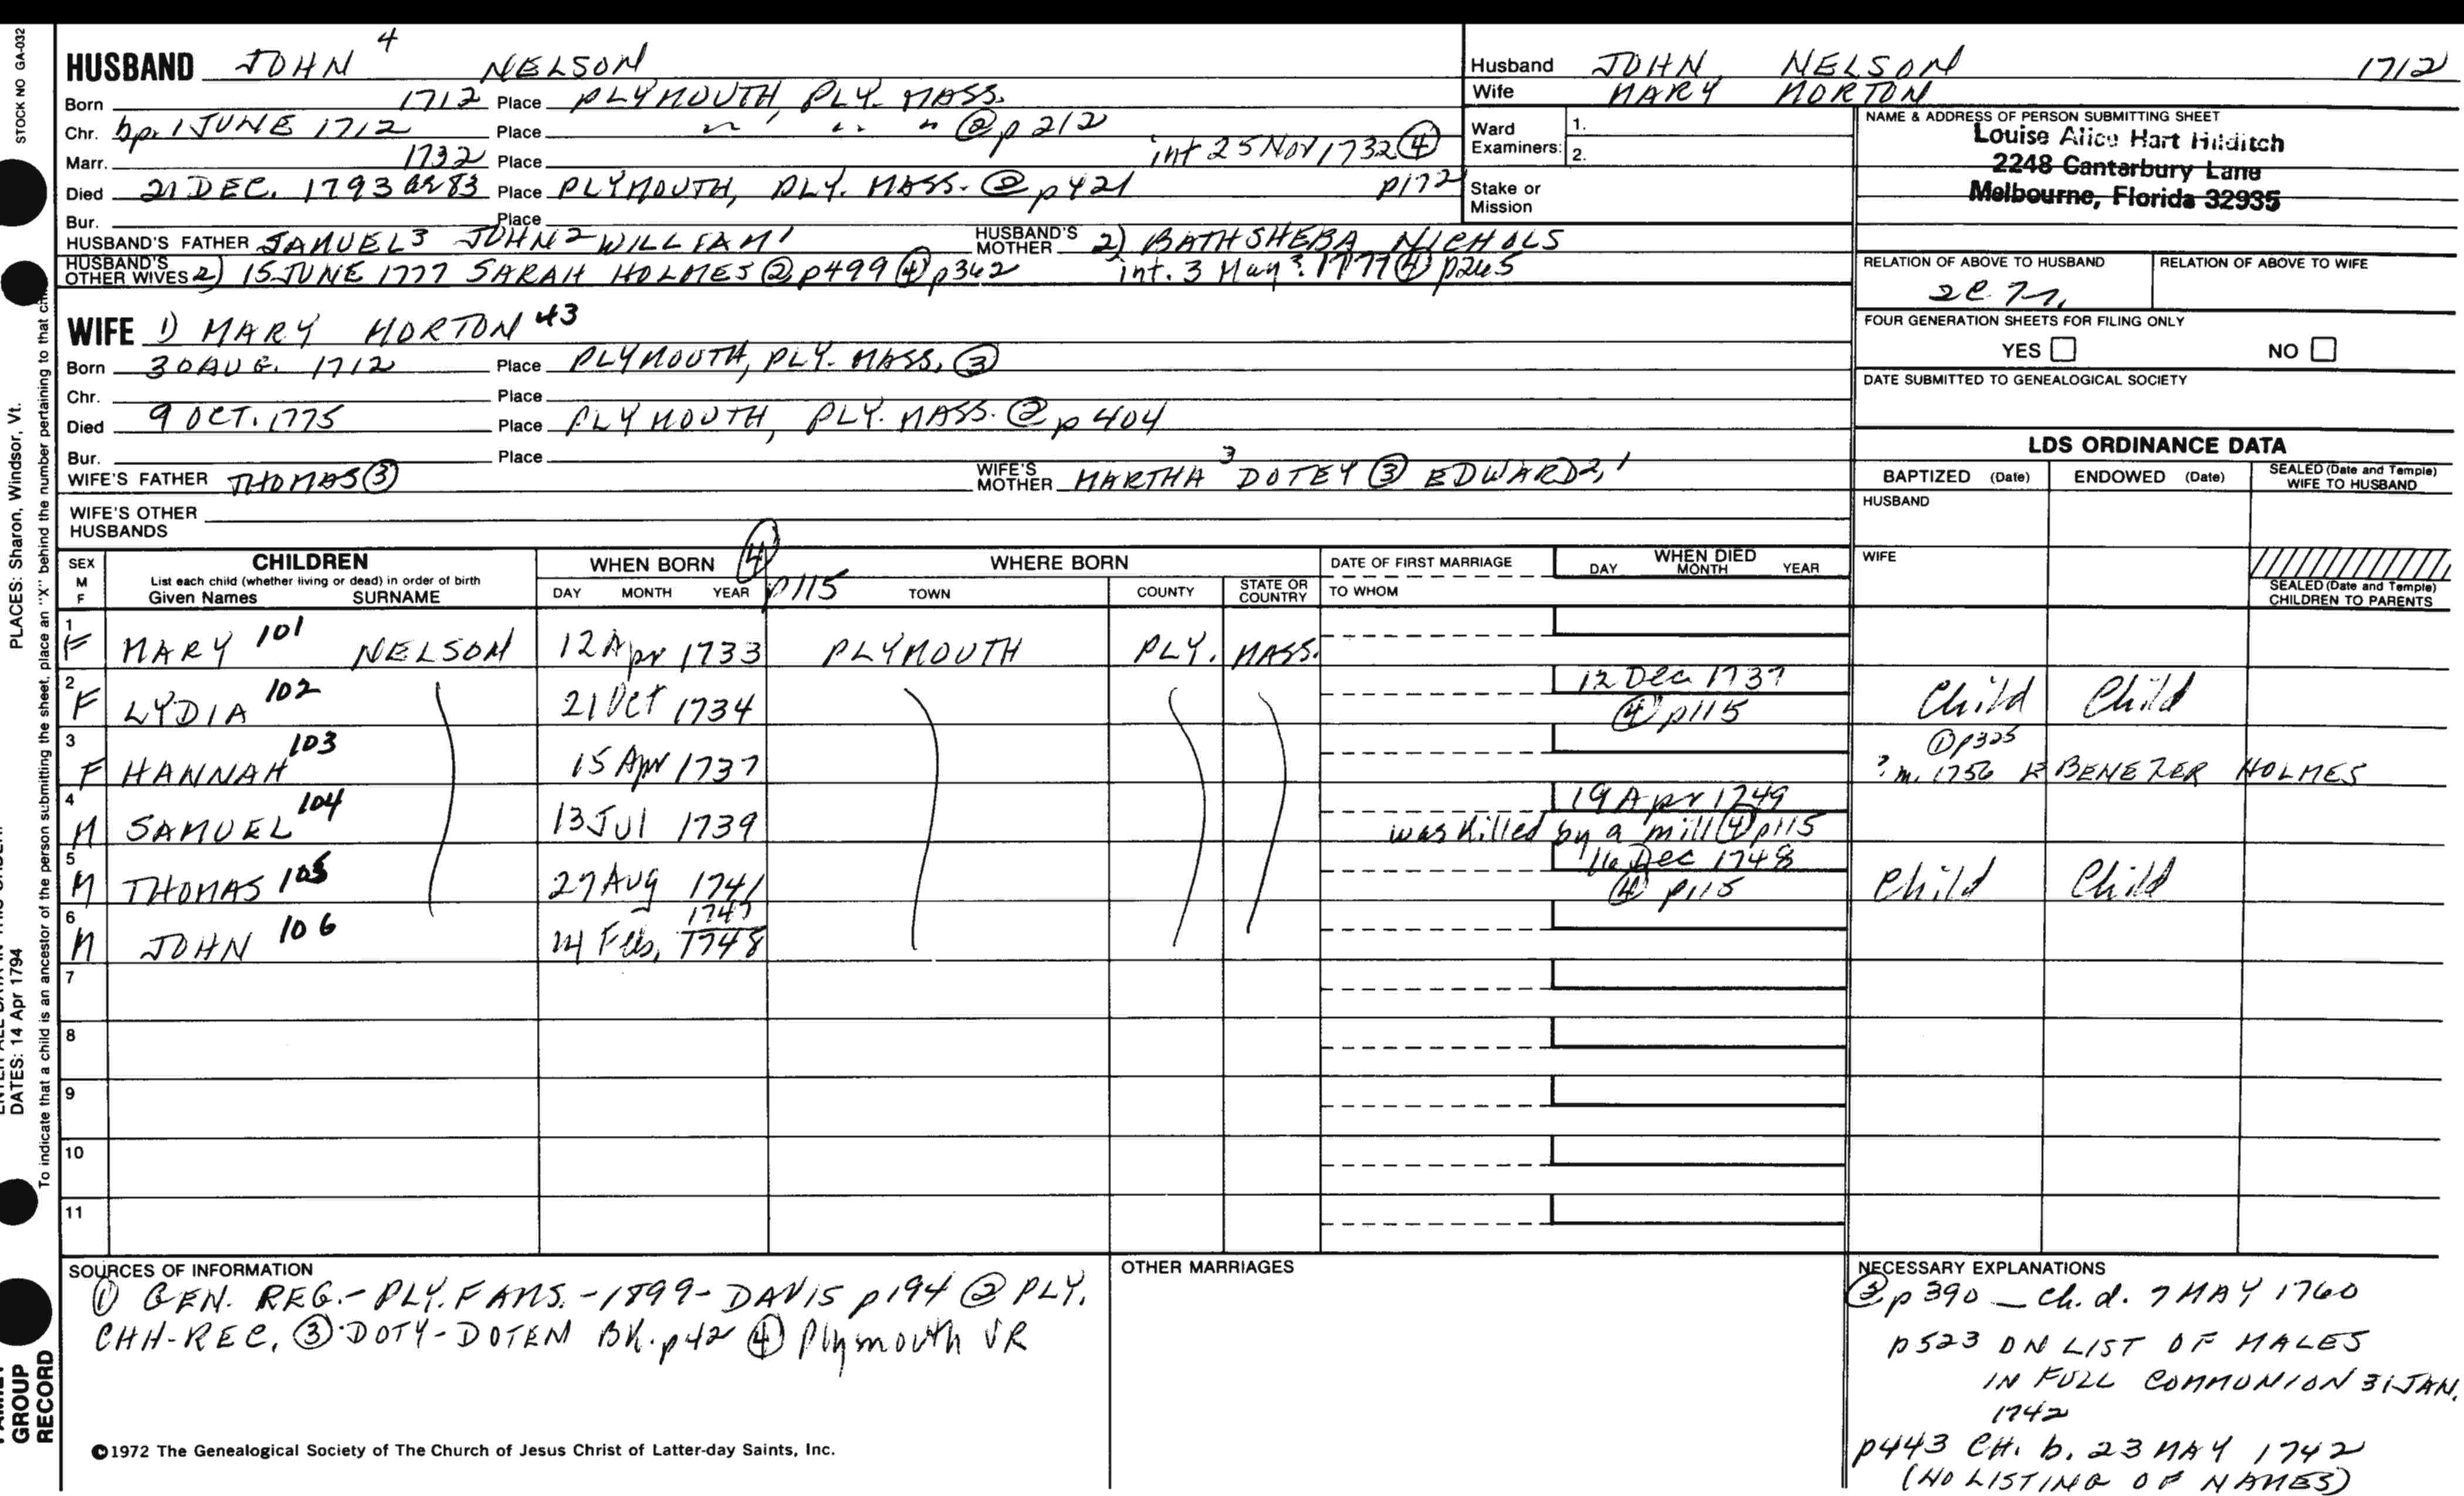 STOCK NO GA-032
PLACES: Sharon, Windsor, Vt.
DATES: 14 Apr 1794
To indicate that a child is an ancestor of the person submitting the sheet, place an "X" behind the number pertaining to that
GROUP
RECORD
HUSBAND JOHN 4 NELSON
Born 1712 Place PLYMOUTH, PLY. MASS.
Chr. bp. 1 JUNE 1712 Place " " " ② p 212
Marr. 1732 Place int 25 Nov 1732 ④
p172
Died 21 DEC. 1793 ae 83 Place PLYMOUTH, PLY. MASS. ② p 421
Bur. Place
HUSBAND'S FATHER SAMUEL3 JOHN2 WILLIAM1 HUSBAND'S MOTHER 2) BATHSHEBA NICHOLS
HUSBAND'S OTHER WIVES 2) 15 JUNE 1777 SARAH HOLMES ② p499 ④ p362 int. 3 May? 1777 ④ p265
WIFE 1) MARY MORTON 43
Born 30 AUG. 1712 Place PLYMOUTH, PLY. MASS. ③
Chr. Place
Died 9 OCT. 1775 Place PLYMOUTH, PLY. MASS. ② p 404
Bur. Place
WIFE'S FATHER THOMAS ③ WIFE'S MOTHER MARTHA 3 DOTEY ③ EDWARD2,1
WIFE'S OTHER HUSBANDS
Husband JOHN NELSON 1712
Wife MARY MORTON
Ward Examiners: 1.
2.
Stake or Mission
NAME & ADDRESS OF PERSON SUBMITTING SHEET
Louise Alice Hart Hilditch
2248 Cantarbury Lane
Melbourne, Florida 32935
RELATION OF ABOVE TO HUSBAND RELATION OF ABOVE TO WIFE
FOUR GENERATION SHEETS FOR FILING ONLY
YES NO
DATE SUBMITTED TO GENEALOGICAL SOCIETY
LDS ORDINANCE DATA
BAPTIZED (Date) ENDOWED (Date) SEALED (Date and Temple) WIFE TO HUSBAND
HUSBAND
WIFE
SEALED (Date and Temple) CHILDREN TO PARENTS
SEX M F
CHILDREN
List each child (whether living or dead) in order of birth
Given Names SURNAME
WHEN BORN ④ p115
DAY MONTH YEAR
WHERE BORN
TOWN COUNTY STATE OR COUNTRY
DATE OF FIRST MARRIAGE
TO WHOM
WHEN DIED
DAY MONTH YEAR
1 F MARY 101 NELSON 12 Apr 1733 PLYMOUTH PLY. MASS.
2 F LYDIA 102 21 Oct 1734 12 Dec 1737 ④ p115 Child Child
3 F HANNAH 103 15 Apr 1737 ① p325 ? m. 1756 EBENEZER HOLMES
4 M SAMUEL 104 13 Jul 1739 19 Apr 1749 was killed by a mill ④ p115
5 M THOMAS 105 27 Aug 1741 16 Dec 1748 ④ p115 Child Child
6 M JOHN 106 14 Feb, 1747/1748
7
8
9
10
11
SOURCES OF INFORMATION
① GEN. REG.- PLY. FAMS. -1899- DAVIS p194 ② PLY.
CHH-REC. ③ DOTY-DOTEN BK. p42 ④ Plymouth VR
©1972 The Genealogical Society of The Church of Jesus Christ of Latter-day Saints, Inc.
OTHER MARRIAGES
NECESSARY EXPLANATIONS
② p 390 — Ch. d. 7 MAY 1760
p523 ON LIST OF MALES
IN FULL COMMUNION 31 JAN.
1742
p443 CH. b. 23 MAY 1742
(NO LISTING OF NAMES)